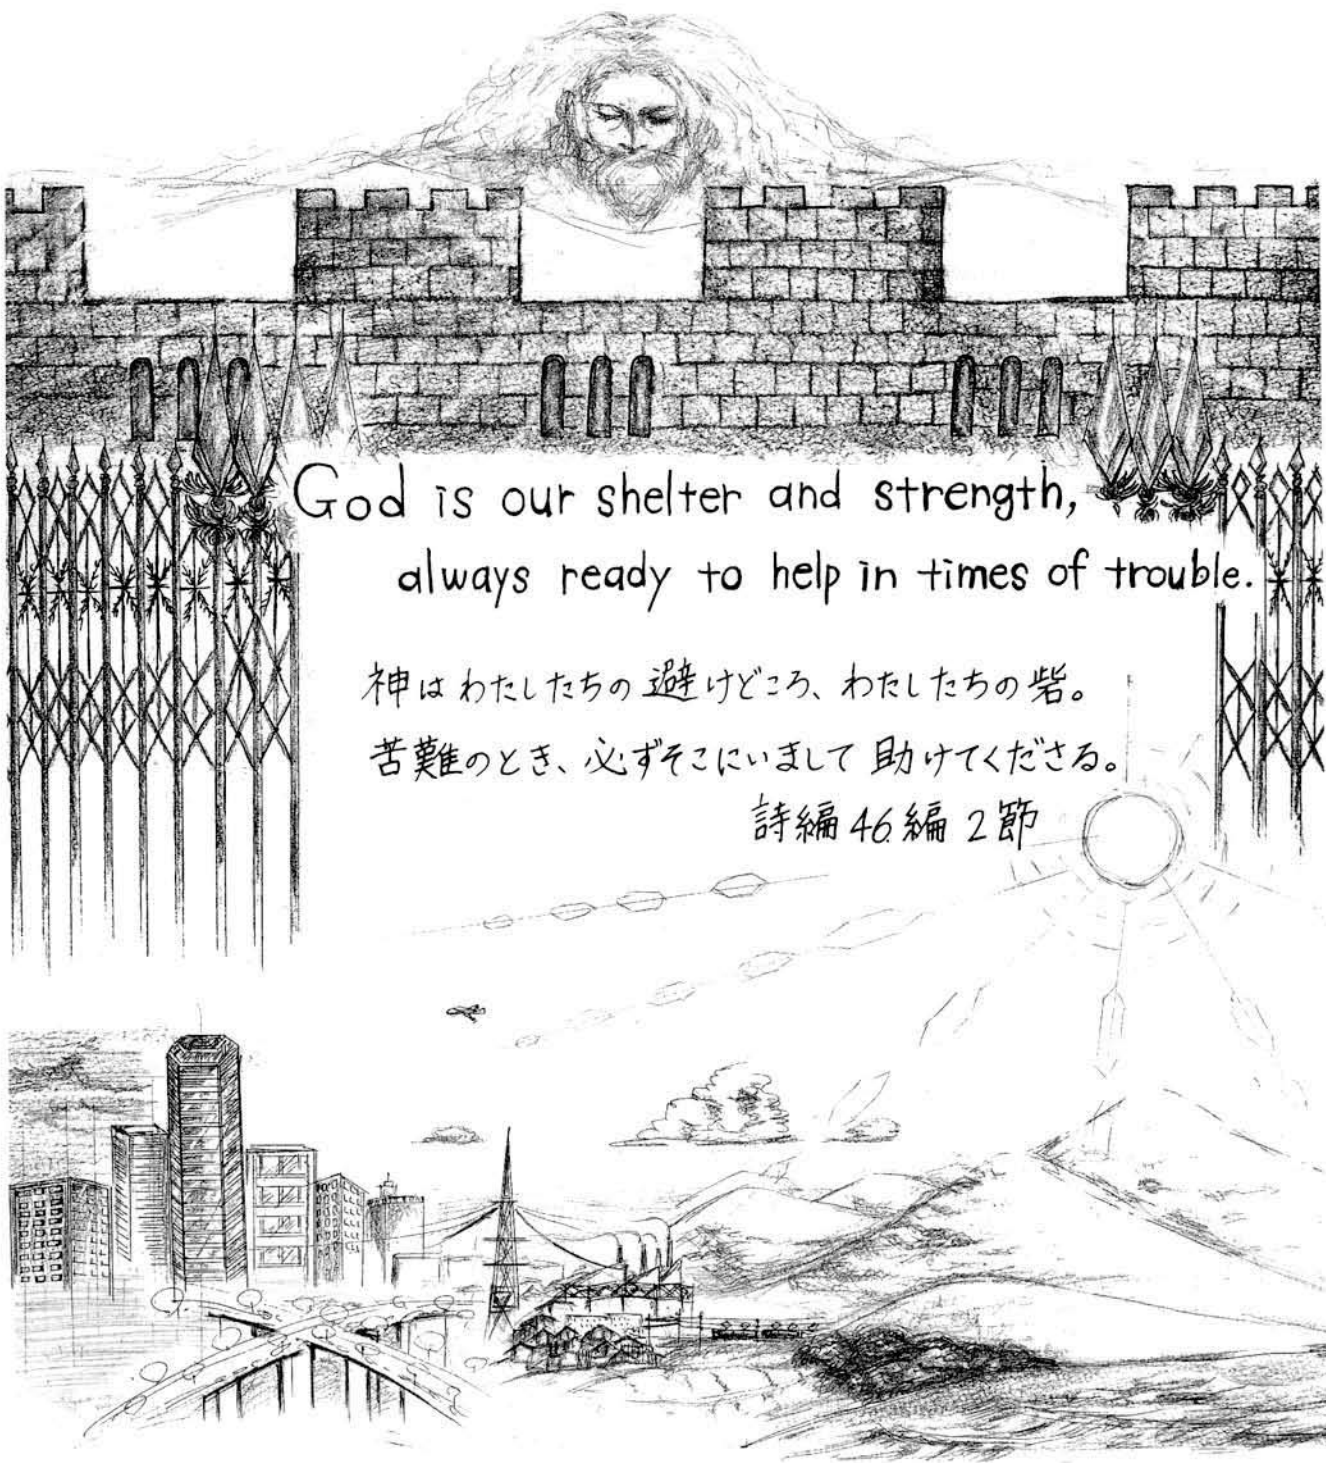 God is our shelter and strength,
always ready to help in times of trouble.
神はわたしたちの避けどころ、わたしたちの砦。
苦難のとき、必ずそこにいまして助けてくださる。
詩編46編2節